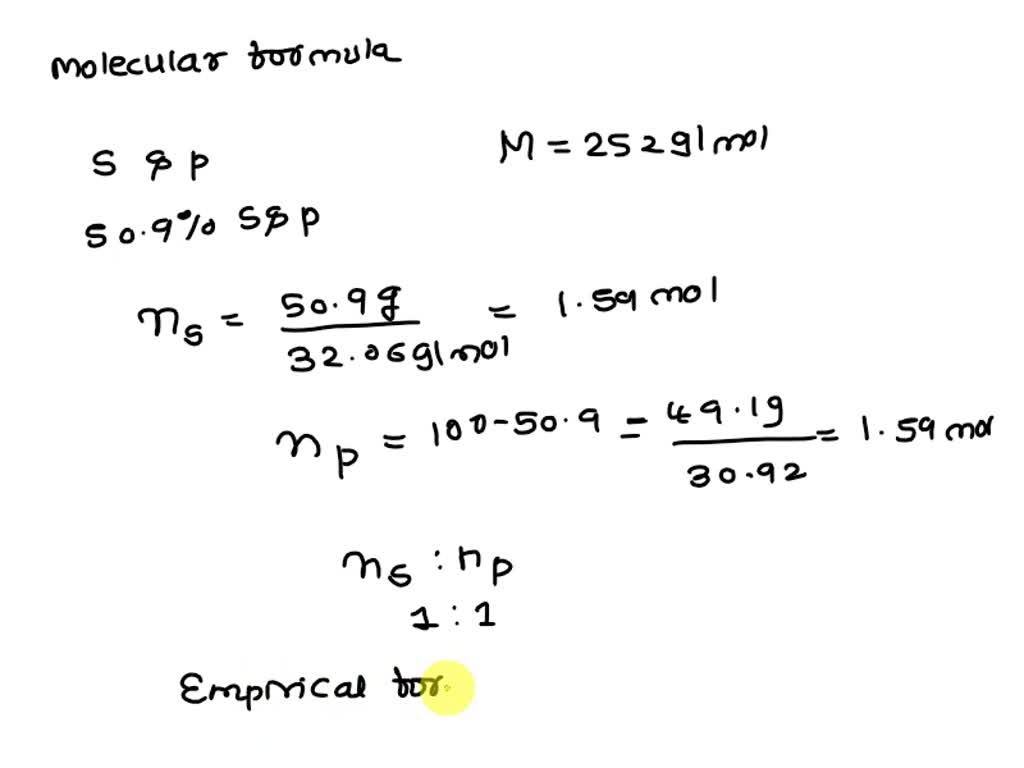 Molecular formula
S & P
M = 252 g/mol
50.9% S & P
ns = 50.9 g / 32.06 g/mol = 1.59 mol
np = 100-50.9 = 49.1g / 30.92 = 1.59 mol
ns : np
1 : 1
Emprical for